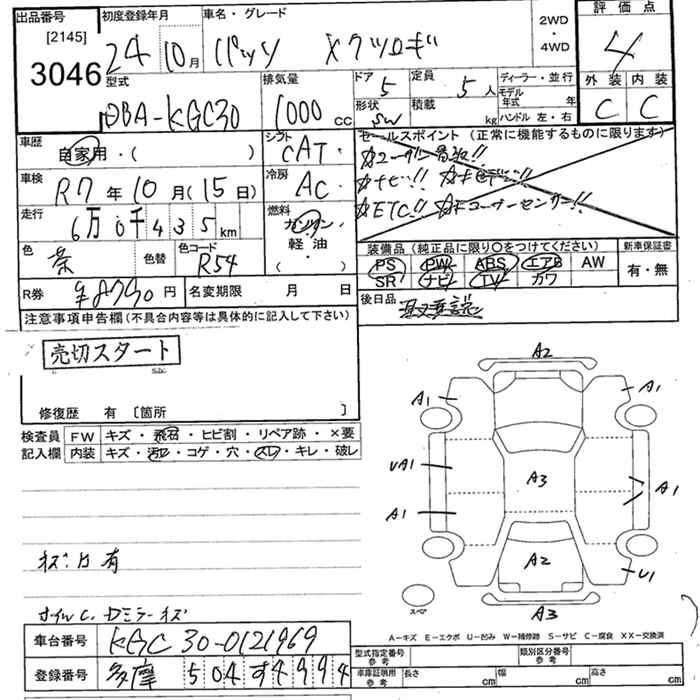 出品番号 [2145] 3046
初度登録年月 24年 10月
車名・グレード パッソ Xクツロギ
2WD・4WD
評価点 4
外装 C 内装 C
型式 DBA-KGC30
排気量 1000 cc
ドア 5 形状 SW
定員 5人 積載 kg
ディーラー・並行
モデル年式 年
ハンドル 左・右
車歴 自家用・( )
車検 R7年10月(15日)
走行 6万0千435km
色 茶 色替 色コード R54
R券 ¥8790円 名変期限 月 日
シフト CAT
冷房 AC
燃料 ガソリン・軽油・( )
セールスポイント(正常に機能するものに限ります)
☆ナビ!!
☆ETC!! ☆Fコーナーセンサー!!
装備品(純正品に限り○をつけてください)
PS PW ABS エアB AW
SR ナビ TV カワ
新車保証書 有・無
後日品 取扱説
注意事項申告欄(不具合内容等は具体的に記入して下さい)
売切スタート
修復歴 有〔箇所 〕
検査員記入欄
FW キズ・飛石・ヒビ割・リペア跡・×要
内装 キズ・汚レ・コゲ・穴・スレ・キレ・破レ
A2
A1 A1
UA1 A3 A1
A1
A2 U1
A3
スペア
A-キズ E-エクボ U-凹み W-補修跡 S-サビ C-腐食 XX-交換済
車台番号 KGC30-0121969
登録番号 多摩 504 す4994
型式指定番号 参考 類別区分番号 参考
車庫証明用 参考 長さ cm 幅 cm 高さ cm